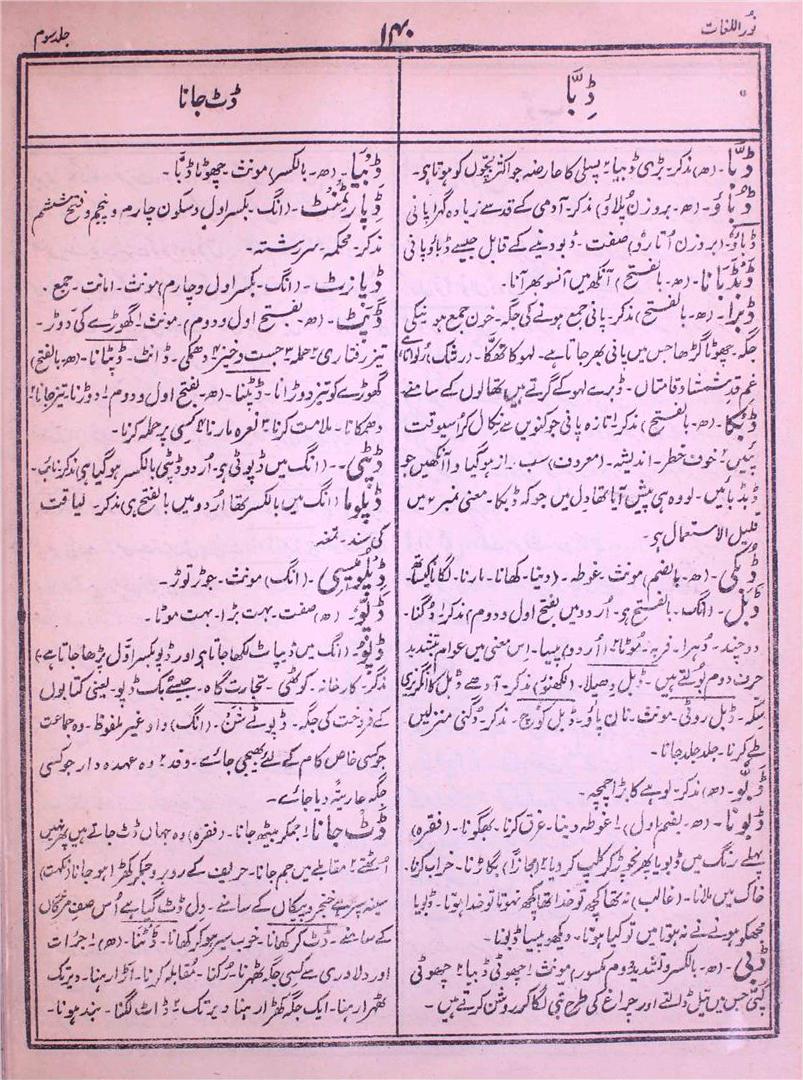 نور اللغات
۱۴۰
جلد سوم
ڈِبَّا
ڈٹ جانا
ڈبّا ۔ (ھ) مذکر۔ بڑی ڈبیا ۲ پسلی کا عارضہ جو اکثر بچّوں کو ہوتا ہی۔
ڈباؤ ۔ (ھ۔ بروزن پلاؤ) مذکر۔ آدمی کے قد سے زیادہ گہرا پانی
ڈباؤ (بروزن اُتارو) صفت۔ ڈبو دینے کے قابل جیسے ڈباؤ پانی
ڈبڈبانا ۔ (ھ۔ بالفتح) آنکھ میں آنسو بھر آنا۔
ڈبرا ۔ (ھ۔ بالفتح) مذکر۔ پانی جمع ہونے کی جگہ۔ خون جمع ہونیکی
جگہ۔ چھوٹا گڑھا جس میں پانی بھر جاتا ہے۔ لہو کا تھکّا۔ (رشک)
غم قدِ شمشاد قامتاں ۔ ڈبرے لہو کے گرتے ہیں تھالوں کے سامنے۔
ڈبکا ۔ (ھ۔ بالفتح) مذکر ۱ تازہ پانی جو کنویں سے نکال کر اُسیوقت
پئیں ۲ خوف خطر۔ اندیشہ۔ (معروف) سب راز ہوگیا وا آنکھیں جو
ڈبڈبائیں۔ لو وہ ہی پیش آیا تھا دل میں جو کہ ڈبکا۔ معنی نمبر ۲ میں
قلیل الاستعمال ہی۔
ڈُبکی ۔ (ھ۔ بالضم) مونث۔ غوطہ۔ (دینا۔ کھانا۔ مارنا۔ لگانا کیساتھ)
ڈبل ۔ (انگ۔ بالفتح ہی۔ اُردو میں بفتح اول و دوم) مذکر ۱ دُگنا۔
دوچند۔ دُہرا۔ فربہ۔ موٹا ۲ (اُردو) پیسا۔ اِس معنی میں عوام بتشدید
حرف دوم بولتے ہیں۔ ڈبل دھیلا۔ (لکھنؤ) مذکر۔ آدھے ڈبل کا انگریزی
سکّہ۔ ڈبل روٹی۔ مونث۔ نان پاؤ۔ ڈبل کوچ۔ مذکر۔ دُگنی منزلیں
طے کرنا۔ جلد جلد جانا۔
ڈبّو ۔ (ھ) مذکر۔ لوہے کا بڑا چمچہ۔
ڈبونا ۔ (ھ۔ بضم اول) ۱ غوطہ دینا۔ غرق کرنا۔ بھگونا۔ (فقرہ)
پہلے رنگ میں ڈبویا پھر نچوڑ کر کلپ کر دیا ۲ (مجازاً) بگاڑنا۔ خراب کرنا۔
خاک میں ملانا۔ (غالب) نہ تھا کچھ تو خدا تھا کچھ نہوتا تو خدا ہوتا۔ ڈبویا
مجھکو ہونے نے نہ ہوتا میں تو کیا ہوتا۔ دیکھو پیسا ڈبونا۔
ڈبی ۔ (ھ۔ بالکسر و تشدید دوم مکسور) مونث ۱ چھوٹی ڈبیا ۲ چھوٹی
کپّی جس میں تیل ڈالتے اور چراغ کی طرح بتی لگا کر روشن کرتے ہیں۔
ڈبیا ۔ (ھ۔ بالکسر) مونث۔ چھوٹا ڈبّا۔
ڈِپارٹمنٹ ۔ (انگ۔ بکسر اول و سکون چارم و پنجم و فتح ششم
مذکر۔ محکمہ۔ سررشتہ۔
ڈپازٹ ۔ (انگ۔ بکسر اول و چارم) مونث۔ امانت۔ جمع۔
ڈپٹ ۔ (ھ۔ بفتح اول و دوم) مونث ۱ گھوڑے کی دوڑ۔
تیز رفتاری ۲ حملہ ۳ جست و خیز ۴ دھمکی۔ ڈانٹ۔ ڈپٹانا۔ (ھ۔ بالفتح)
گھوڑے کو تیز دوڑانا۔ ڈپٹنا۔ (ھ۔ بفتح اول و دوم) ۱ دوڑنا۔ تیز جانا ۲
دھمکانا۔ ملامت کرنا ۳ نعرہ مارنا ۴ کسی پر حملہ کرنا۔
ڈپٹی ۔ (انگ میں ڈپوٹی ہی۔ اُردو ڈپٹی بالکسر ہوگیا ہی) مذکر۔ نائب۔
ڈپلوما (انگ میں بالکسر تھا اُردو میں بالفتح ہی) مذکر۔ لیاقت
کی سند۔ تمغہ
ڈپلومیسی (انگ) مونث۔ جوڑ توڑ۔
ڈپّو ۔ (ھ) صفت۔ بہت بڑا۔ بہت موٹا۔
ڈپو (انگ میں ڈیپاٹ لکھا جاتا ہی اور ڈپو بکسر اوّل پڑھا جاتا ہے)
مذکر۔ کارخانہ۔ کوٹھی۔ تجارت گاہ۔ جیسے بک ڈپو۔ یعنی کتابوں
کے فروخت کی جگہ۔ ڈپوٹے شن۔ (انگ) واو غیر ملفوظ۔ وہ جماعت
جو کسی خاص کام کے لئے بھیجی جائے۔ وفد ۲ وہ عہدہ دار جو کسی
جگہ عاریۃً دیا جائے۔
ڈٹ جانا ۱ جمکر بیٹھ جانا۔ (فقرہ) وہ جہاں ڈٹ جاتے ہیں پھر نہیں
اُٹھتے ۲ مقابلے میں جم جانا۔ حریف کے روبرو جمکر کھڑا ہو جانا (نکہت)
سینہ سپر ہے خنجر و پیکاں کے سامنے۔ دل ڈٹ گیا ہے اُس صفِ مژگاں
کے سامنے۔ ڈٹ کر کھانا۔ خوب سیر ہو کر کھانا۔ ڈٹنا۔ (ھ) ۱ جرات
اور دلاوری سے کسی جگہ ٹھہرنا۔ رُکنا۔ مقابلہ کرنا۔ اڑا رہنا۔ دیر تک
ٹھہرا رہنا۔ ایک جگہ کھڑا رہنا دیر تک ۲ ڈاٹ لگنا۔ بند ہونا۔